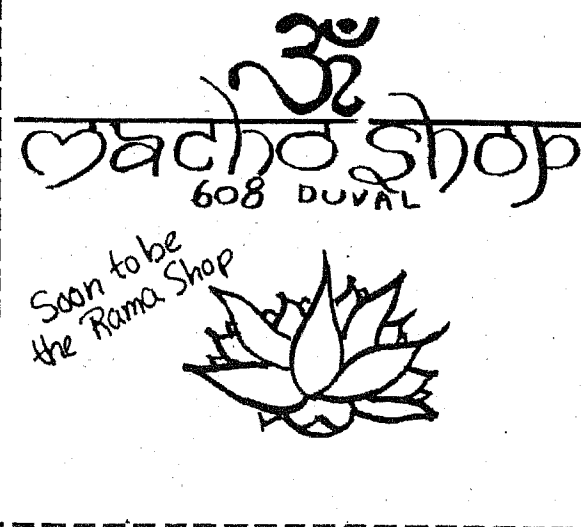 ॐ
Macho Shop
608 DUVAL
Soon to be
the Rama Shop